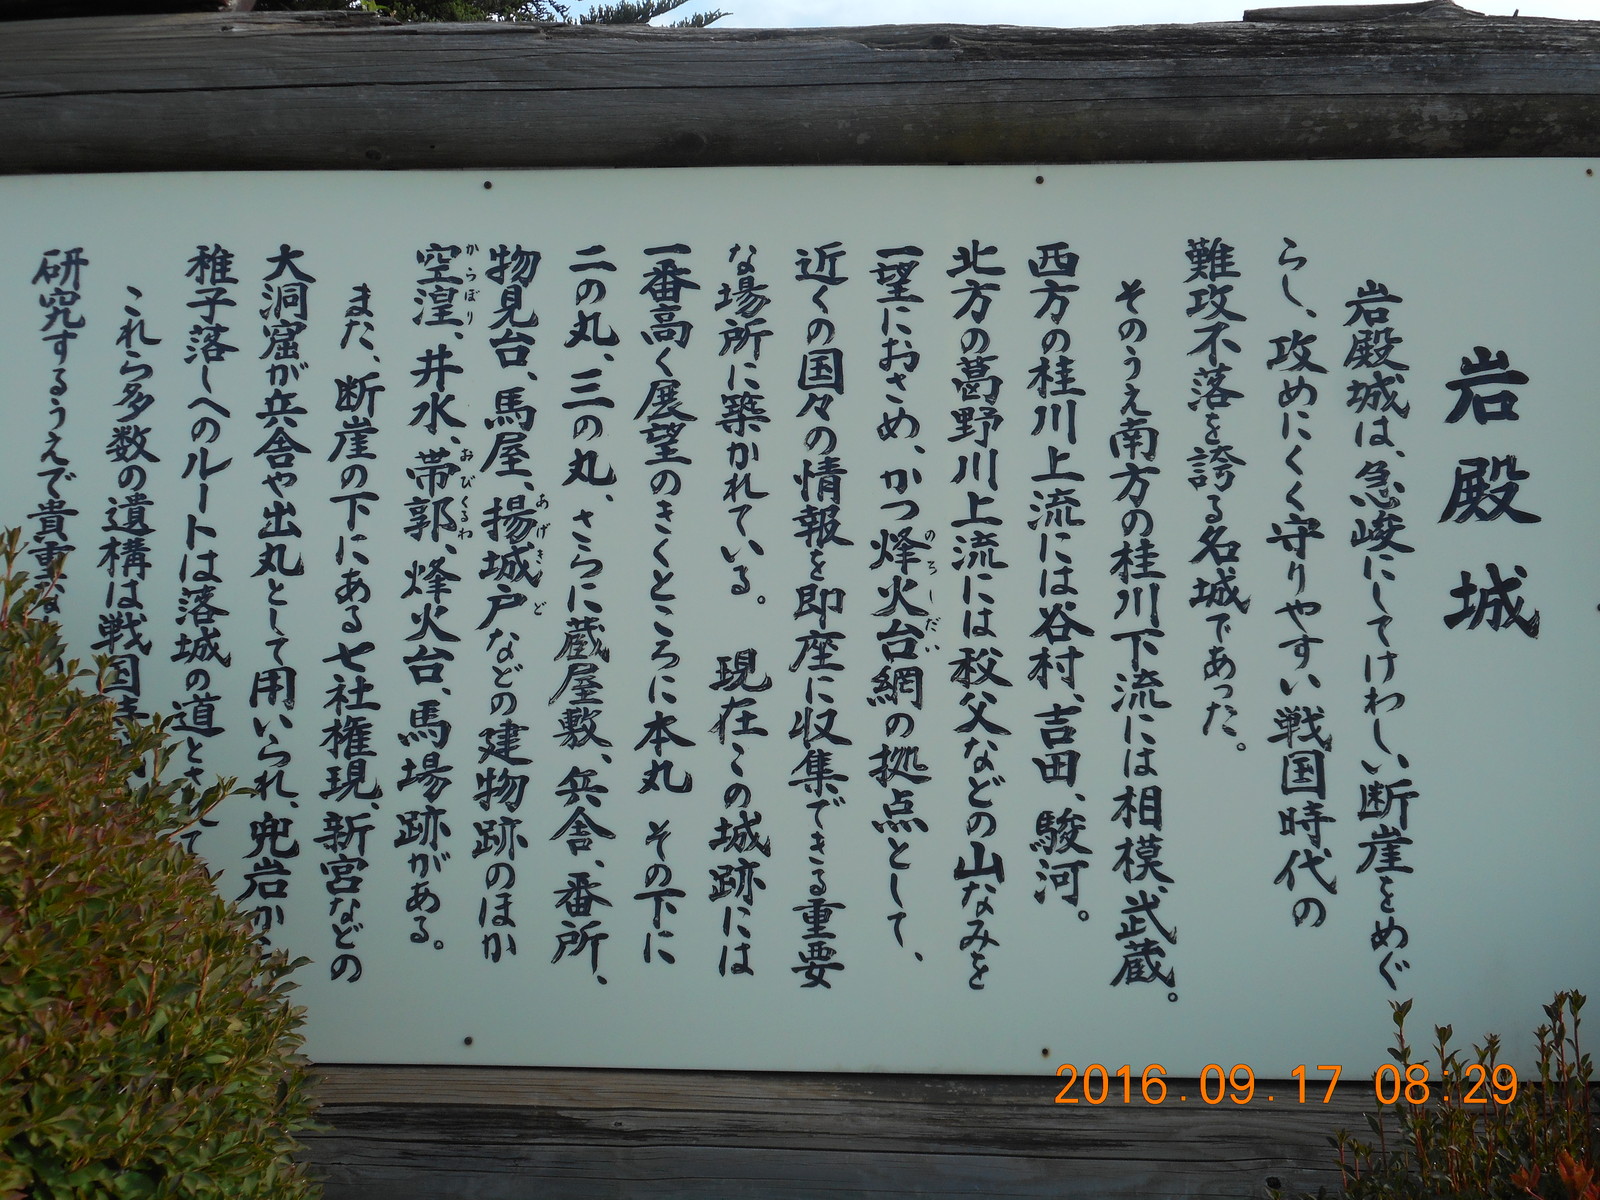 岩殿城
岩殿城は、急峻にしてけわしい断崖をめぐ
らし、攻めにくく守りやすい戦国時代の
難攻不落を誇る名城であった。
そのうえ南方の桂川下流には相模、武蔵。
西方の桂川上流には谷村、吉田、駿河。
北方の葛野川上流には秩父などの山なみを
一望におさめ、かつ烽火台網の拠点として、
のろしだい
近くの国々の情報を即座に収集できる重要
な場所に築かれている。 現在この城跡には
一番高く展望のきくところに本丸 その下に
二の丸、三の丸、さらに蔵屋敷、兵舎、番所、
物見台、馬屋、揚城戸などの建物跡のほか
あげきど
空湟、井水、帯郭、烽火台、馬場跡がある。
からぼり おびくるわ
また、断崖の下にある七社権現、新宮などの
大洞窟が兵舎や出丸として用いられ、兜岩か
稚子落しへのルートは落城の道とさ
これら多数の遺構は戦国
研究するうえで貴重
2016.09.17 08:29